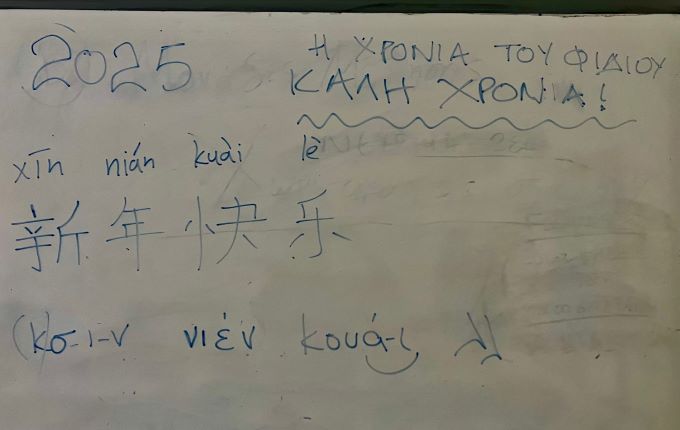 2025
Η ΧΡΟΝΙΑ ΤΟΥ ΦΙΔΙΟΥ
ΚΑΛΗ ΧΡΟΝΙΑ!
xīn nián kuài lè
新年快乐
(κ)σ-ι-ν νιέν κουά-ι